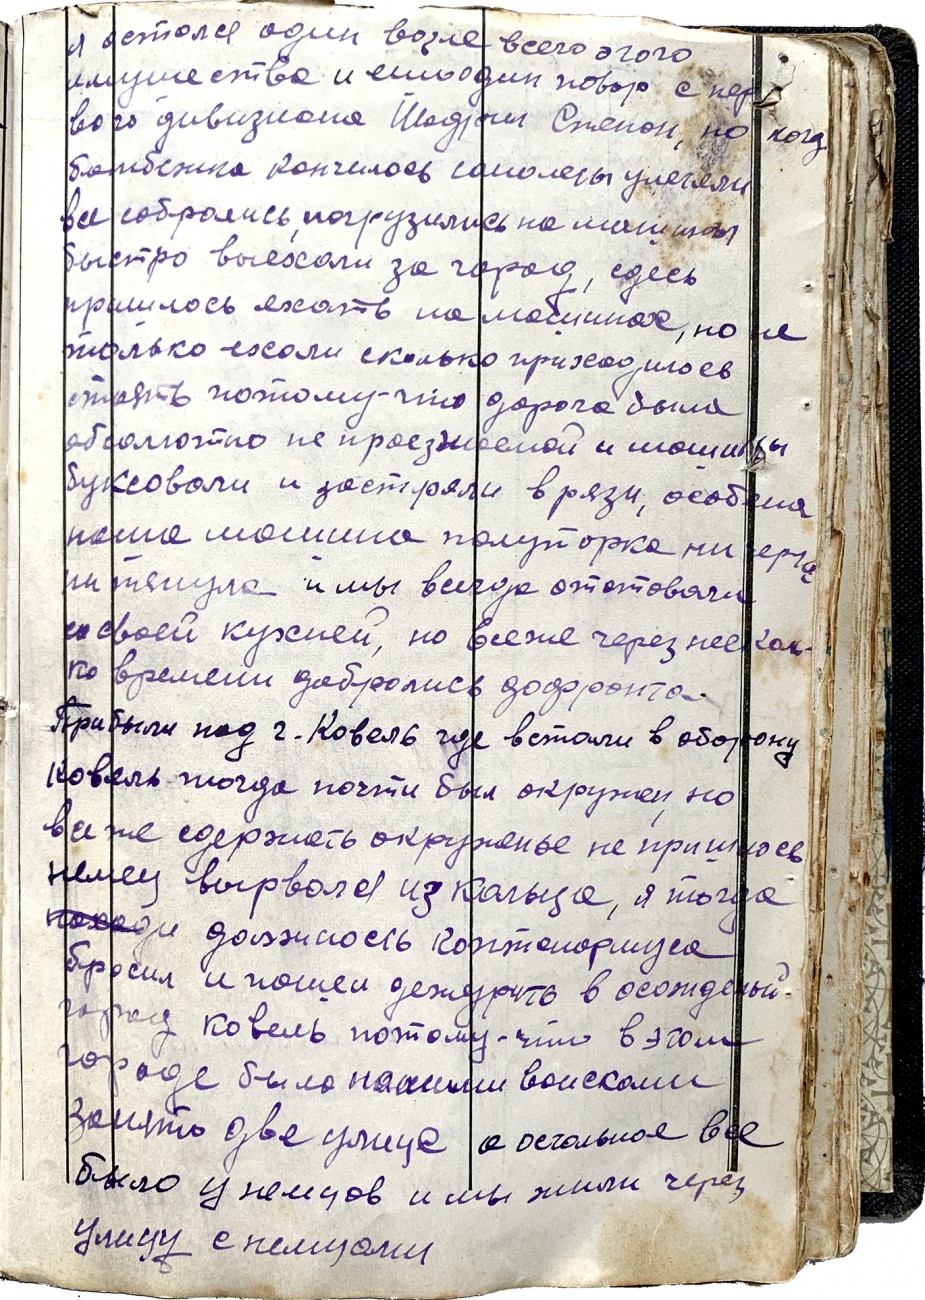 я остался один возле всего этого
имущества и ешьодин повар с пер
вого дивизиона Шадрин Степан, но когд
бамбежка кончилось самолеты улетели
все собрались, погрузились на машины
быстро выехали за город, сдесь
пришлось ехать на машинах, но не
только ехали сколько приходилось
стоять потому-что дорога была
абсолютно не проезжаемой и машины
буксовали и застряли в рязи, особена
наша машина полуторка ни черта
ни тянула и мы всегда отстовали
со своей кухней, но всеже через несколь-
ко времени добрались дофронта
Прибыли под г. Ковель где встали в оборону
Ковель тогда почти был окружен, но
все же сдержать окруженье не пришлось
немец вырвался из кальца, я тогда
должность каптенармуса
бросил и пошел дежурить в осажденый
город Ковель потому-что в этом
городе было нашими воисками
Занято две улице а остальное все
было у немцов и мы жили через
улицу с немцами